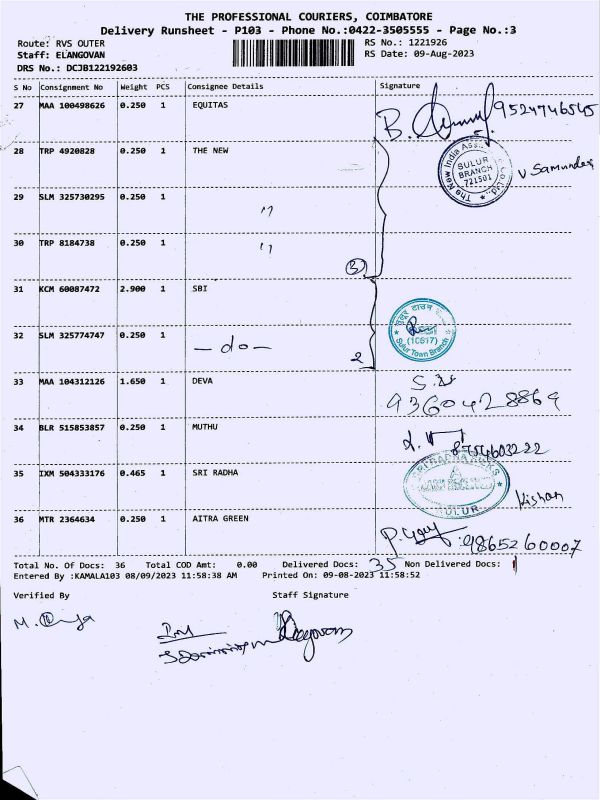 THE PROFESSIONAL COURIERS, COIMBATORE
Delivery Runsheet - P103 - Phone No.:0422-3505555 - Page No.:3
Route: RVS OUTER RS No.: 1221926
Staff: ELANGOVAN RS Date: 09-Aug-2023
DRS No.: DCJB122192603
S No Consignment No Weight PCS Consignee Details Signature
27 MAA 100498626 0.250 1 EQUITAS 9524746545
28 TRP 4920828 0.250 1 THE NEW
The New India Ass. Co. Ltd.
SULUR
BRANCH
721501
V Samundex
29 SLM 325730295 0.250 1 〃
30 TRP 8184738 0.250 1 〃
3
31 KCM 60087472 2.900 1 SBI
32 SLM 325774747 0.250 1 - do -
2
सुलूर टाउन
(10617)
Sulur Town Branch
33 MAA 104312126 1.650 1 DEVA
9360428869
34 BLR 515853857 0.250 1 MUTHU
8754603222
35 IXM 504333176 0.465 1 SRI RADHA
SULUR
Kishan
36 MTR 2364634 0.250 1 AITRA GREEN
:9865260007
Total No. Of Docs: 36 Total COD Amt: 0.00 Delivered Docs: 35 Non Delivered Docs: 1
Entered By :KAMALA103 08/09/2023 11:58:38 AM Printed On: 09-08-2023 11:58:52
Verified By Staff Signature